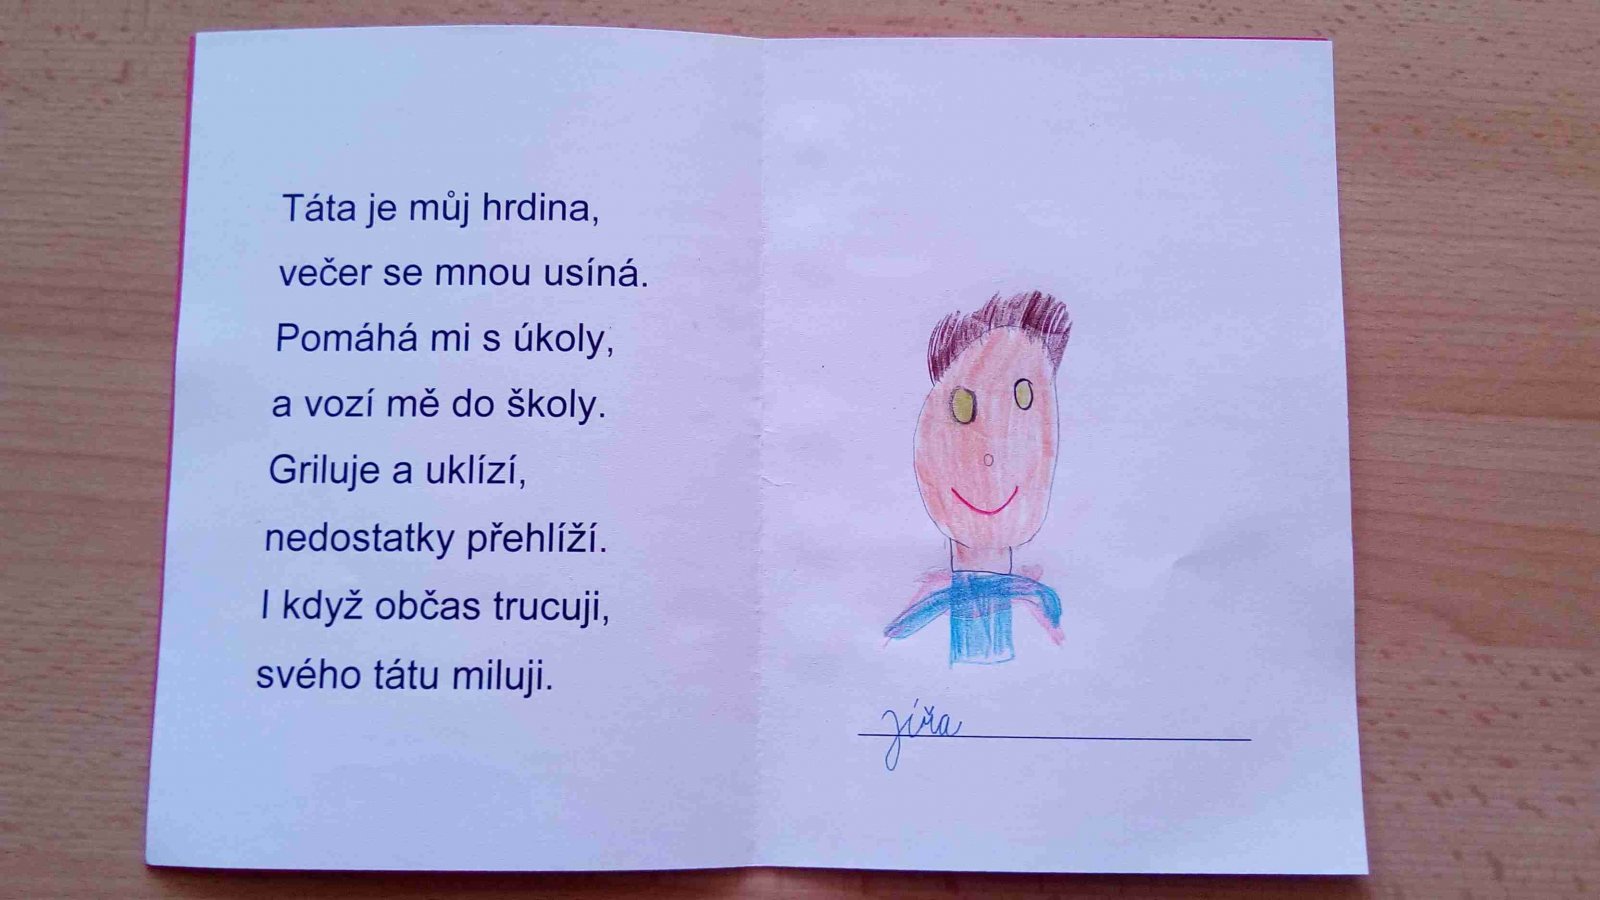 Táta je můj hrdina,
večer se mnou usíná.
Pomáhá mi s úkoly,
a vozí mě do školy.
Griluje a uklízí,
nedostatky přehlíží.
I když občas trucuji,
svého tátu miluji.
Jířa